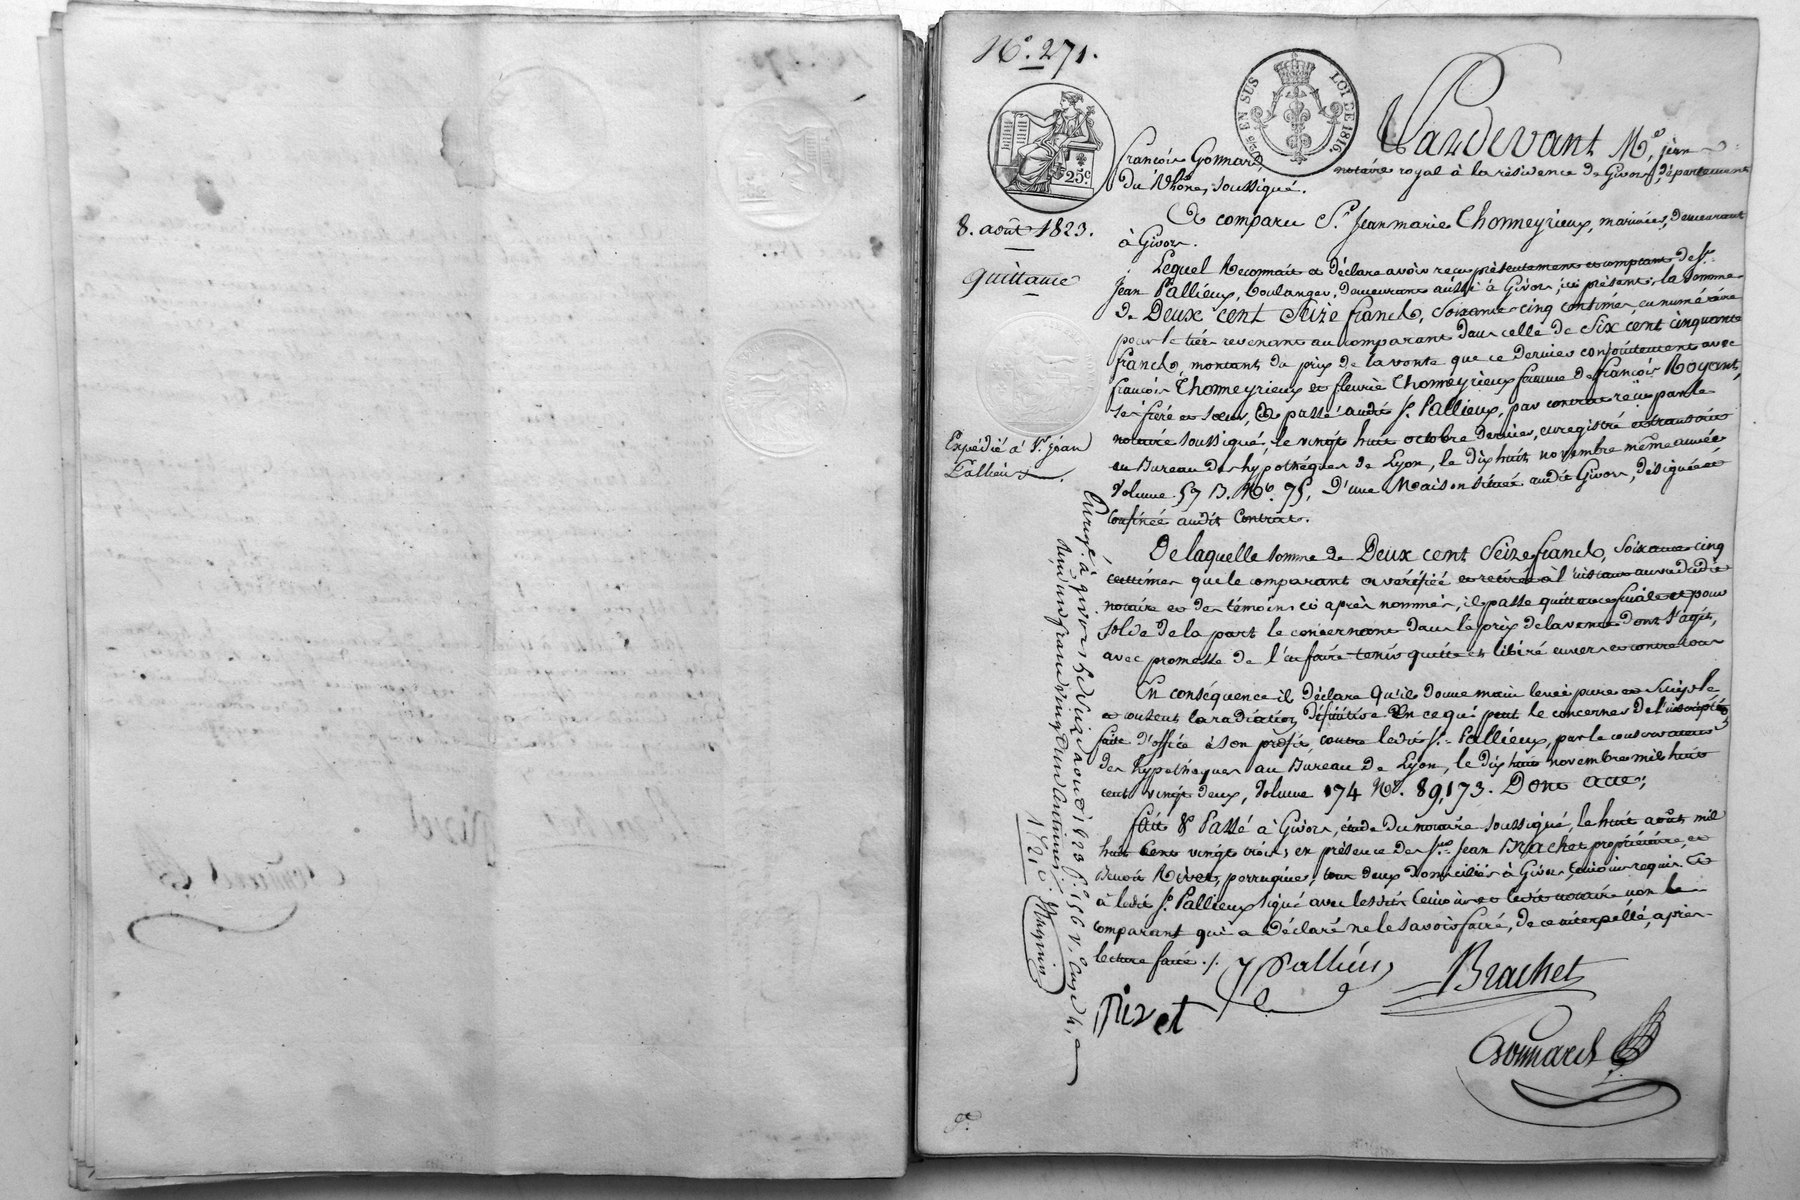 N.º 271.
25.c
EN SUS
LOI DE 1816.
Pardevant M.e jean
françois Gonnard, notaire royal à la résidence de Givors, département
du Rhône, soussigné.
8. août 1823.
quittance
Expédié à Sr. jean
Pallieux.
Et comparu Sr. Jean marie Thonneyrieux, marinier, demeurant
à Givors.
Lequel Reconnait et déclare avoir reçu présentement et comptant de Sr.
jean Pallieux, boulanger, demeurant aussi à Givors, ici présent, la somme
de Deux cent Seize francs, soixante cinq centimes en numéraire
pour le tiers revenant au comparant dans celle de Six cent cinquante
francs, montant du prix de la vente que ce dernier conjointement avec
françois Thonneyrieux et fleurie Thonneyrieux femme de françois Royant,
ses frère et soeur, a passé audit Sr. Pallieux, par contrat reçu par le
notaire soussigné, le vingt huit octobre dernier, enregistré et transcrit
au Bureau des hypothéques de Lyon, le dix huit novembre même année
volume 57 B. No. 75, d'une Maison située audit Givors, désignée et
confinée audit Contrat.
De laquelle somme de Deux cent Seize francs, soixante cinq
centimes que le comparant a vérifiée et retirée à l'instant au vu dudit
notaire et des témoins ci après nommés, il passe quittance finale et pour
solde de la part le concernant dans le prix de la vente dont s'agit,
avec promesse de l'en faire tenir quitte et libéré envers et contre tous
En conséquence il déclare qu'il donne main levée pure et Simple
et consent la radiation définitive En ce qui peut le concerner de l'inscription
faite d'office à son profit, contre ledit Sr. Pallieux, par le conservateur
des hypothéques au Bureau de Lyon, le dix huit novembre mil huit
cent vingt deux, volume 174 No. 89,173. Dont acte;
fait & Passé à Givors, étude du notaire soussigné, le huit août mil
huit Cent vingt trois, en présence des Srs. Jean Brachet propriétaire, et
Benoit Rivet, perruquier, tous deux domiciliés à Givors, témoins requis et
a ledit Sr. Pallieux signé avec lesdits témoins et ledit notaire non le
comparant qui a déclaré ne le savoir faire, de ce interpellé, après
lecture faite ./.
J Pallieux
Brachet
Rivet
Gonnard
Enregé. à givors le dix d'aout 1823 fo. 156 Vo. Case 4,
reçu un franc vingt un centimes
1f 21c. Magnin